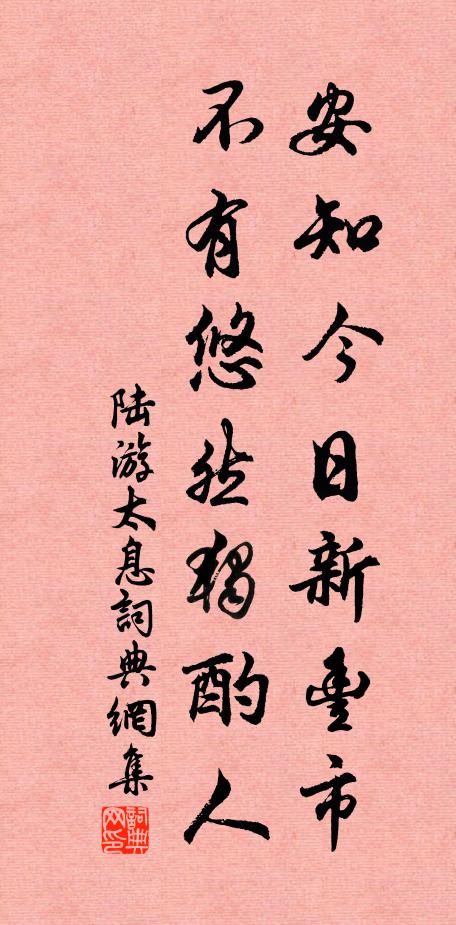 安知今日新豐市
不有悠然獨酌人
陆游太息詞典網集
詞典網印